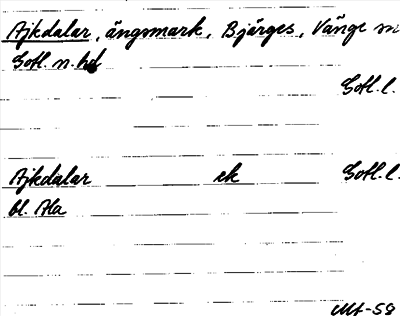 Ajkdalar, ängsmark, Bjärges, Vänge sn
Gotl. n. hd
Gotl. l.
Ajkdalar ek Gotl. l.
bl. Ala
-58